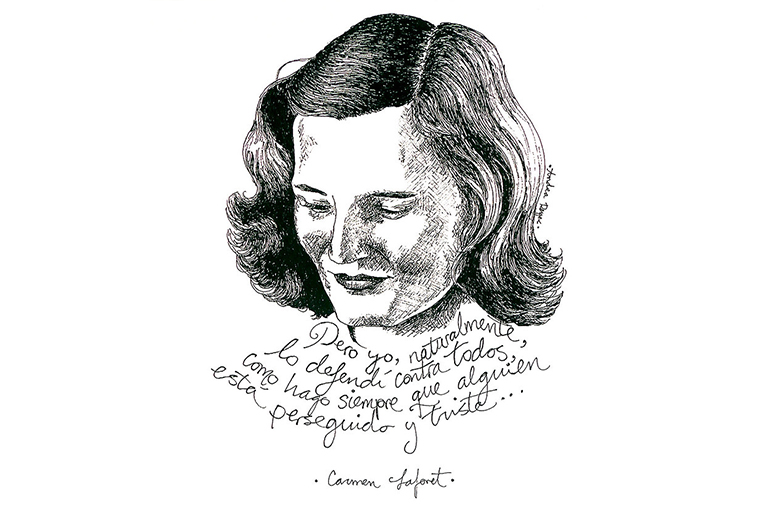 Pero yo, naturalmente,
lo defendí contra todos,
como hago siempre que alguien
está perseguido y triste...
· Carmen Laforet ·